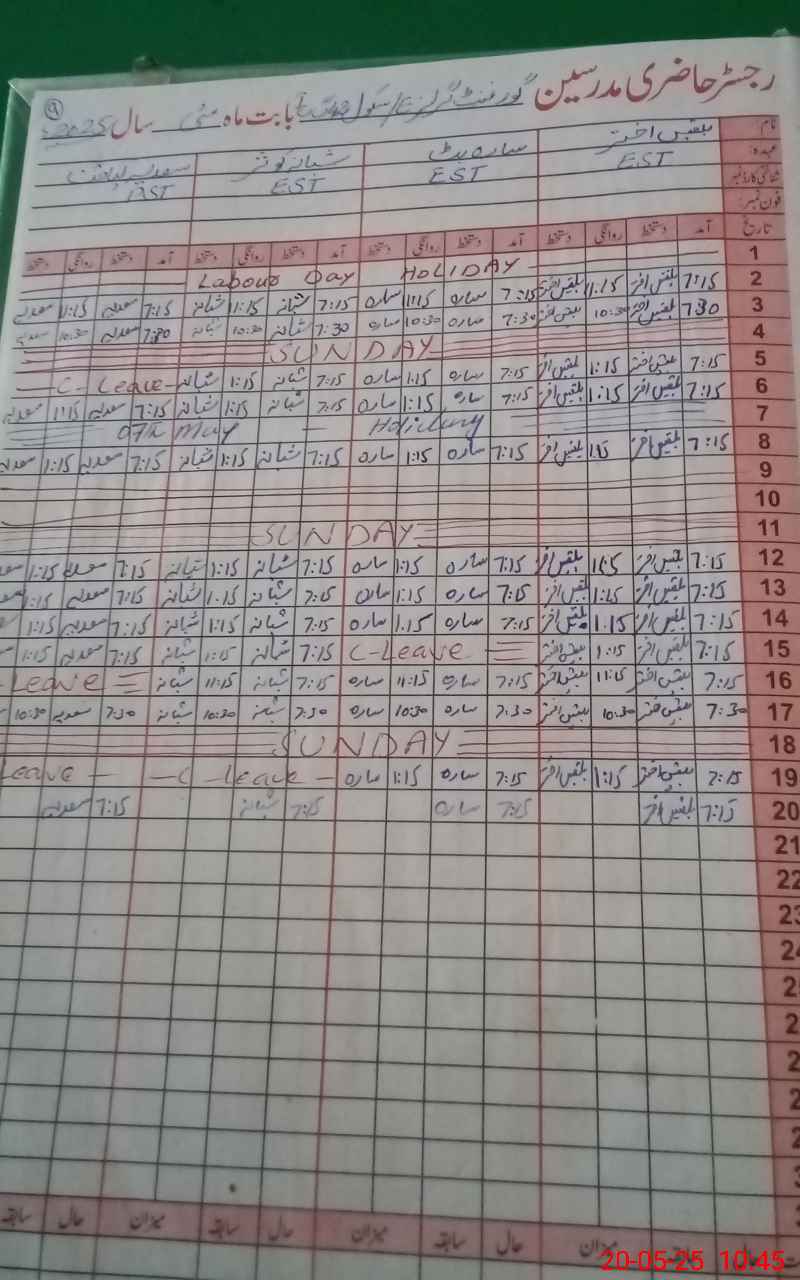 رجسٹر حاضری مدرسین گورنمنٹ گرلز /E سکول بابت ماہ مئی سال 2025
۹
نام بلقیس اختر سارہ بٹ شبانہ کوثر سعدیہ
عہدہ: EST EST EST
شناختی کارڈ نمبر
فون نمبر:
تاریخ آمد دستخط روانگی دستخط آمد دستخط روانگی دستخط آمد دستخط روانگی دستخط آمد دستخط روانگی دستخط
1 Labour Day HOLIDAY
2 7:15 بلقیس اختر 1:15 بلقیس اختر 7:15 سارہ 1:15 سارہ 7:15 شبانہ 1:15 شبانہ 7:15 سعدیہ 1:15 سعدیہ
3 7:30 بلقیس اختر 10:30 بلقیس اختر 7:30 سارہ 10:30 سارہ 7:30 شبانہ 10:30 شبانہ 7:30 سعدیہ 10:30 سعدیہ
4 SUNDAY
5 7:15 بلقیس اختر 1:15 بلقیس اختر 7:15 سارہ 1:15 سارہ 7:15 شبانہ 1:15 شبانہ C-Leave
6 7:15 بلقیس اختر 1:15 بلقیس اختر 7:15 سارہ 1:15 سارہ 7:15 شبانہ 1:15 شبانہ 7:15 سعدیہ 1:15 سعدیہ
7 07th May - Holiday
8 7:15 بلقیس اختر 1:15 بلقیس اختر 7:15 سارہ 1:15 سارہ 7:15 شبانہ 1:15 شبانہ 7:15 سعدیہ 1:15 سعدیہ
9
10
11 SUNDAY
12 7:15 بلقیس اختر 1:15 بلقیس اختر 7:15 سارہ 1:15 سارہ 7:15 شبانہ 1:15 شبانہ 7:15 سعدیہ 1:15
13 7:15 بلقیس اختر 1:15 بلقیس اختر 7:15 سارہ 1:15 سارہ 7:15 شبانہ 1:15 شبانہ 7:15 سعدیہ 1:15
14 7:15 بلقیس اختر 1:15 بلقیس اختر 7:15 سارہ 1:15 سارہ 7:15 شبانہ 1:15 شبانہ 7:15 سعدیہ 1:15
15 7:15 بلقیس اختر 1:15 بلقیس اختر C-Leave 7:15 شبانہ 1:15 شبانہ 7:15 سعدیہ 1:15
16 7:15 بلقیس اختر 11:15 بلقیس اختر 7:15 سارہ 11:15 سارہ 7:15 شبانہ 11:15 شبانہ Leave
17 7:30 بلقیس اختر 10:30 بلقیس اختر 7:30 سارہ 10:30 سارہ 7:30 شبانہ 10:30 شبانہ 7:30 سعدیہ 10:30
18 SUNDAY
19 7:15 بلقیس اختر 1:15 بلقیس اختر 7:15 سارہ 1:15 سارہ - C - Leave - Leave -
20 7:15 بلقیس اختر 7:15 سارہ 7:15 شبانہ 7:15 سعدیہ
21
22
23
24
میزان حال سابقہ میزان حال سابقہ میزان حال سابقہ
20-05-25 10:45